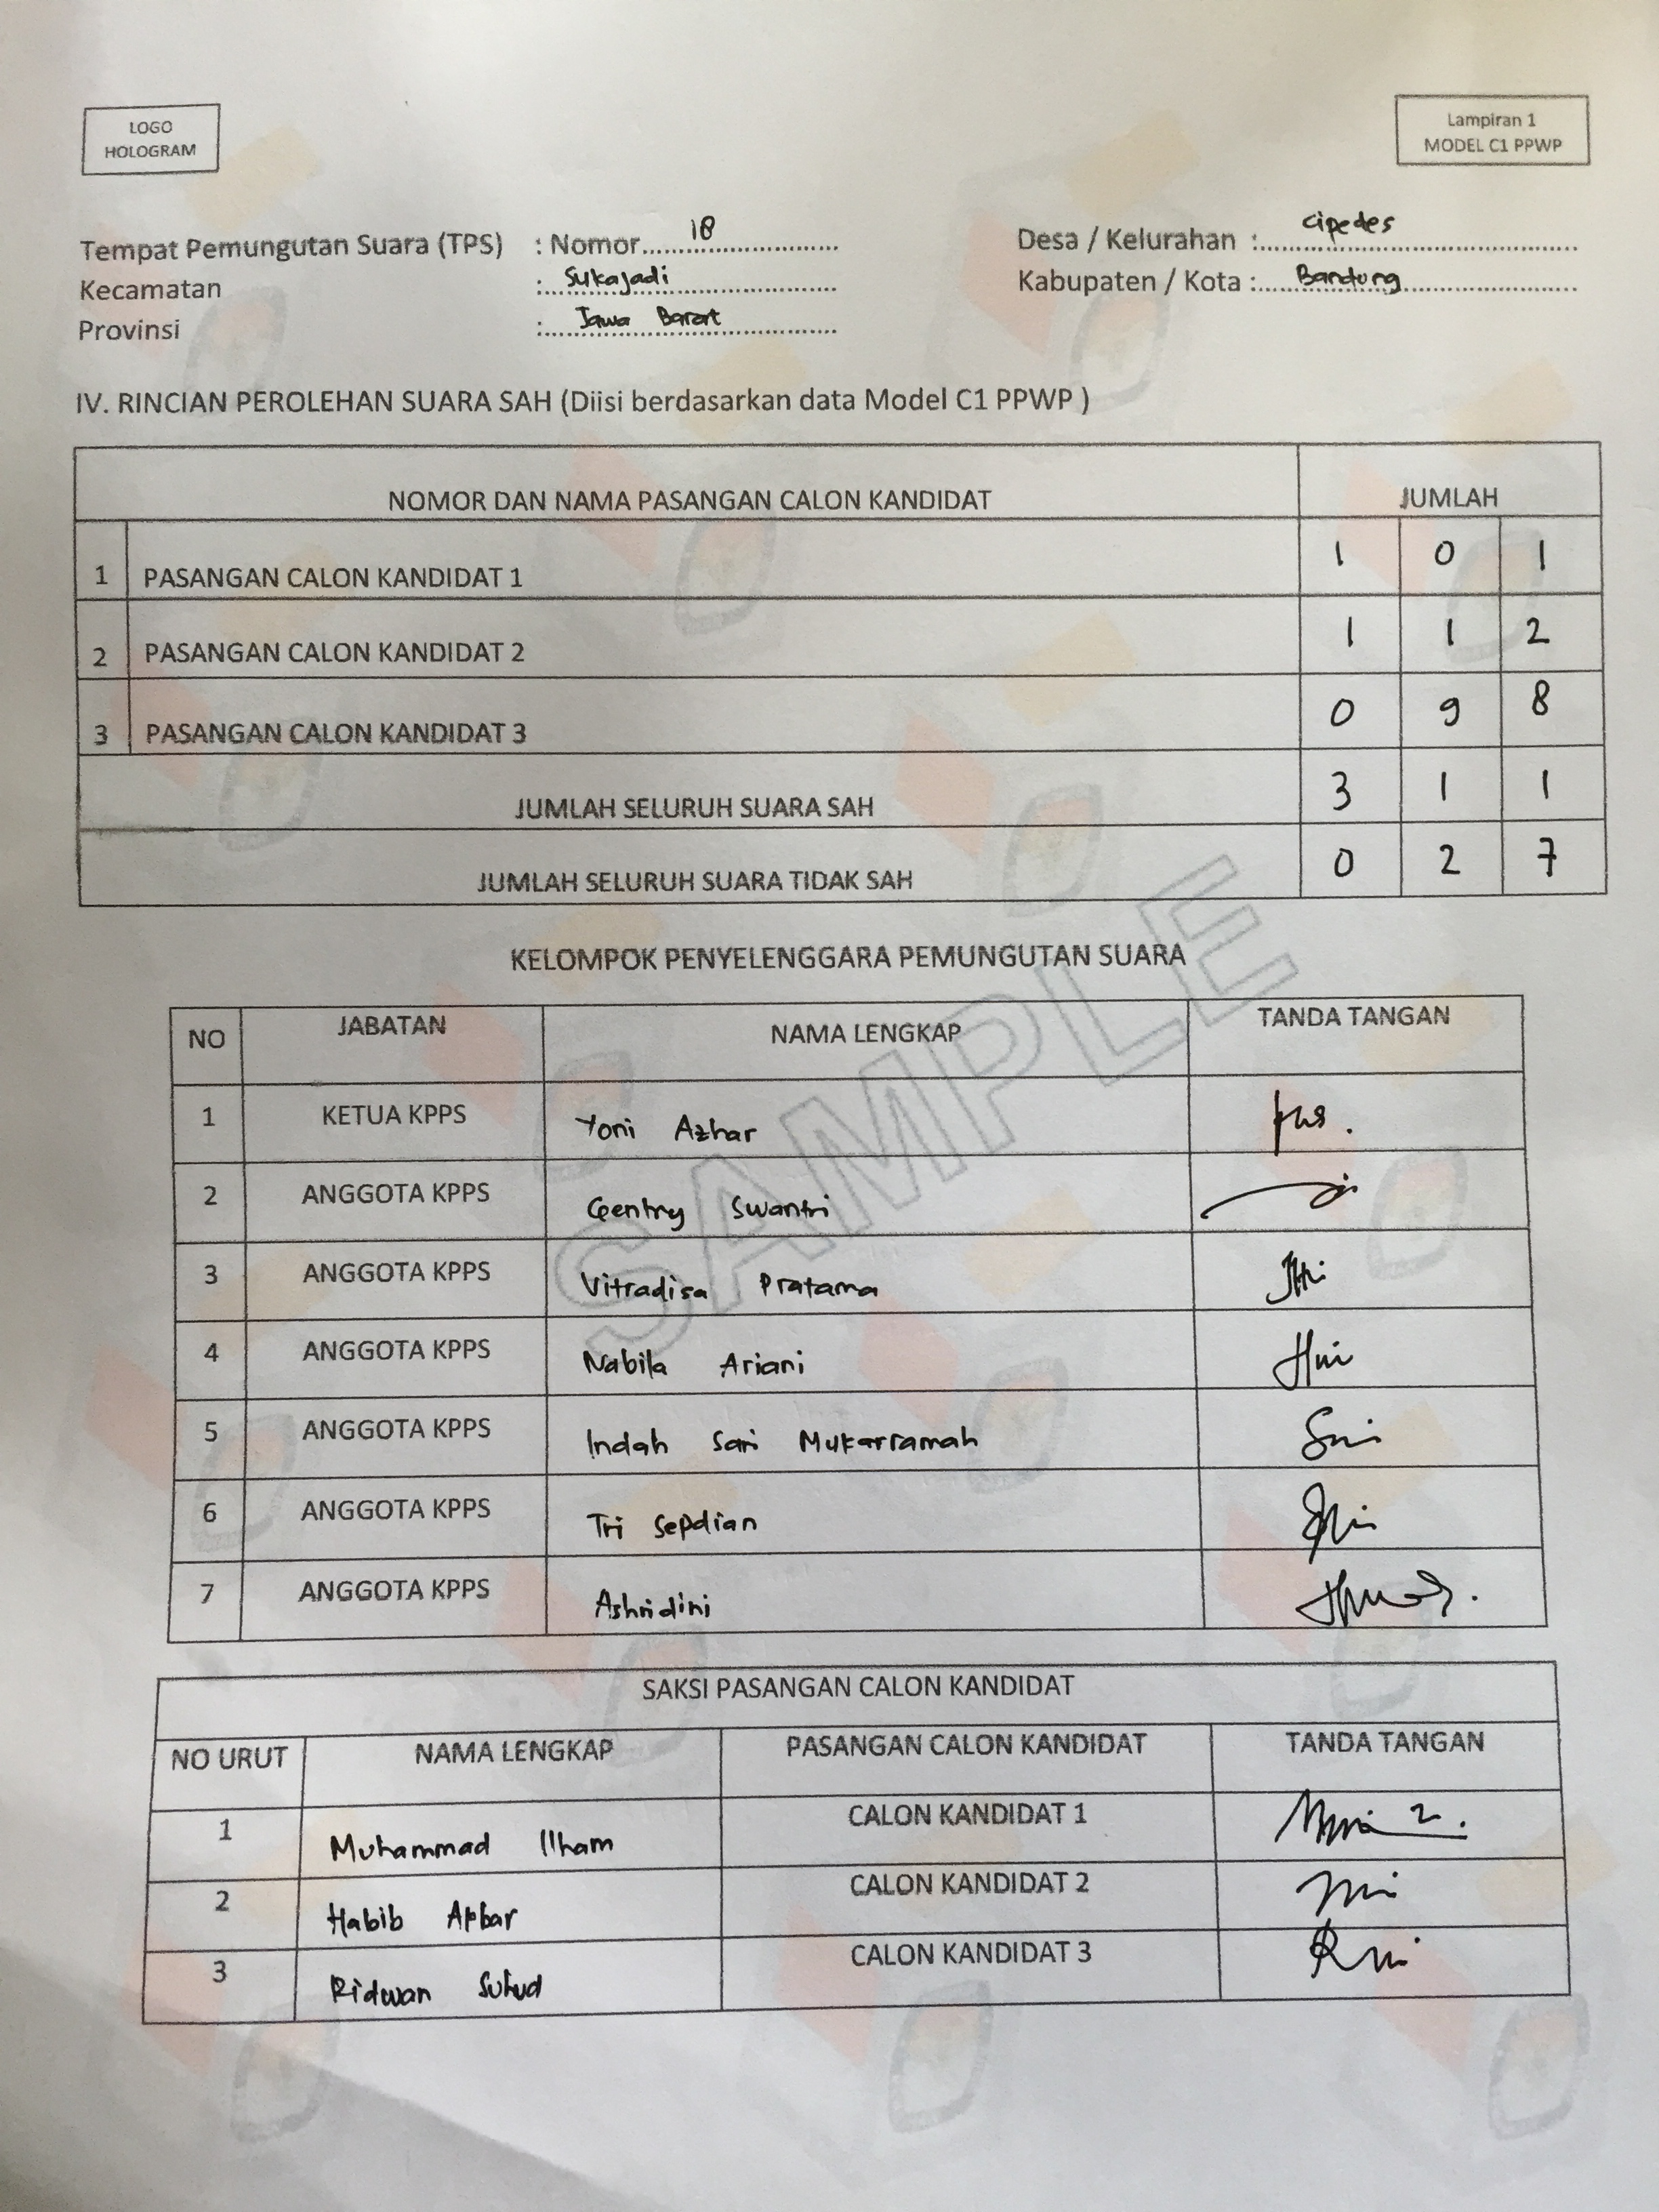 LOGO
HOLOGRAM
Lampiran 1
MODEL C1 PPWP
Tempat Pemungutan Suara (TPS) : Nomor 18 Desa / Kelurahan : Cipedes
Kecamatan : Sukajadi Kabupaten / Kota : Bandung
Provinsi : Jawa Barat
IV. RINCIAN PEROLEHAN SUARA SAH (Diisi berdasarkan data Model C1 PPWP )
NOMOR DAN NAMA PASANGAN CALON KANDIDAT JUMLAH
1 PASANGAN CALON KANDIDAT 1 1 0 1
2 PASANGAN CALON KANDIDAT 2 1 1 2
3 PASANGAN CALON KANDIDAT 3 0 9 8
JUMLAH SELURUH SUARA SAH 3 1 1
JUMLAH SELURUH SUARA TIDAK SAH 0 2 7
SAMPLE
KELOMPOK PENYELENGGARA PEMUNGUTAN SUARA
NO JABATAN NAMA LENGKAP TANDA TANGAN
1 KETUA KPPS Yoni Azhar
2 ANGGOTA KPPS Gentry Swantri
3 ANGGOTA KPPS Vitradisa Pratama
4 ANGGOTA KPPS Nabila Ariani
5 ANGGOTA KPPS Indah Sari Mukarramah
6 ANGGOTA KPPS Tri Sepdian
7 ANGGOTA KPPS Ashridini
SAKSI PASANGAN CALON KANDIDAT
NO URUT NAMA LENGKAP PASANGAN CALON KANDIDAT TANDA TANGAN
1 Muhammad Ilham CALON KANDIDAT 1
2 Habib Akbar CALON KANDIDAT 2
3 Ridwan Suhud CALON KANDIDAT 3